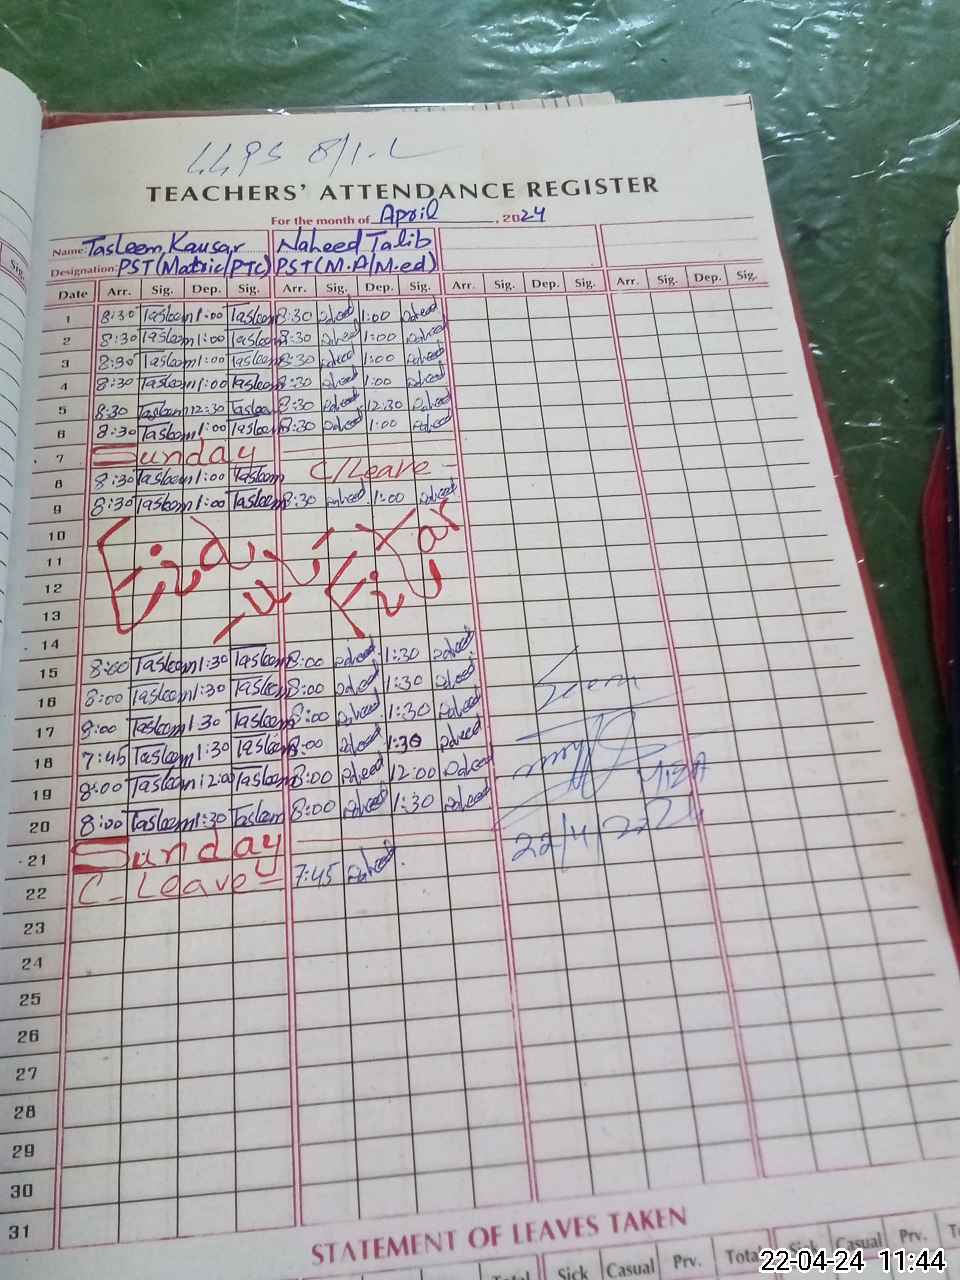 TEACHERS' ATTENDANCE REGISTER
For the month of April, 2024
Name: Tasleem Kausar Naheed Talib
Designation: PST(Matric/PTC) PST(M.A/M.ed)
Date Arr. Sig. Dep. Sig. Arr. Sig. Dep. Sig. Arr. Sig. Dep. Sig. Arr. Sig. Dep. Sig.
1 8:30 Tasleem 1:00 Tasleem 8:30 1:00
2 8:30 Tasleem 1:00 Tasleem 8:30 1:00
3 8:30 Tasleem 1:00 Tasleem 8:30 1:00
4 8:30 Tasleem 1:00 Tasleem 8:30 1:00
5 8:30 Tasleem 12:30 Tasleem 8:30 12:30
6 8:30 Tasleem 1:00 Tasleem 8:30 1:00
7 Sunday
8 8:30 Tasleem 1:00 Tasleem C/Leave
9 8:30 Tasleem 1:00 Tasleem 8:30 1:00
10
11
12
13
Eid ul Fitar
14
15 8:00 Tasleem 1:30 Tasleem 8:00 1:30
16 8:00 Tasleem 1:30 Tasleem 8:00 1:30
17 8:00 Tasleem 1:30 Tasleem 8:00 1:30
18 7:45 Tasleem 1:30 Tasleem 8:00 1:30
19 8:00 Tasleem 12:00 Tasleem 8:00 12:00
20 8:00 Tasleem 1:30 Tasleem 8:00 1:30
21 Sunday
22 C-Leave 7:45
22/4/2024
23
24
25
26
27
28
29
30
31
STATEMENT OF LEAVES TAKEN
Total Sick Casual Prv. Total Sick Casual Prv.
22-04-24 11:44